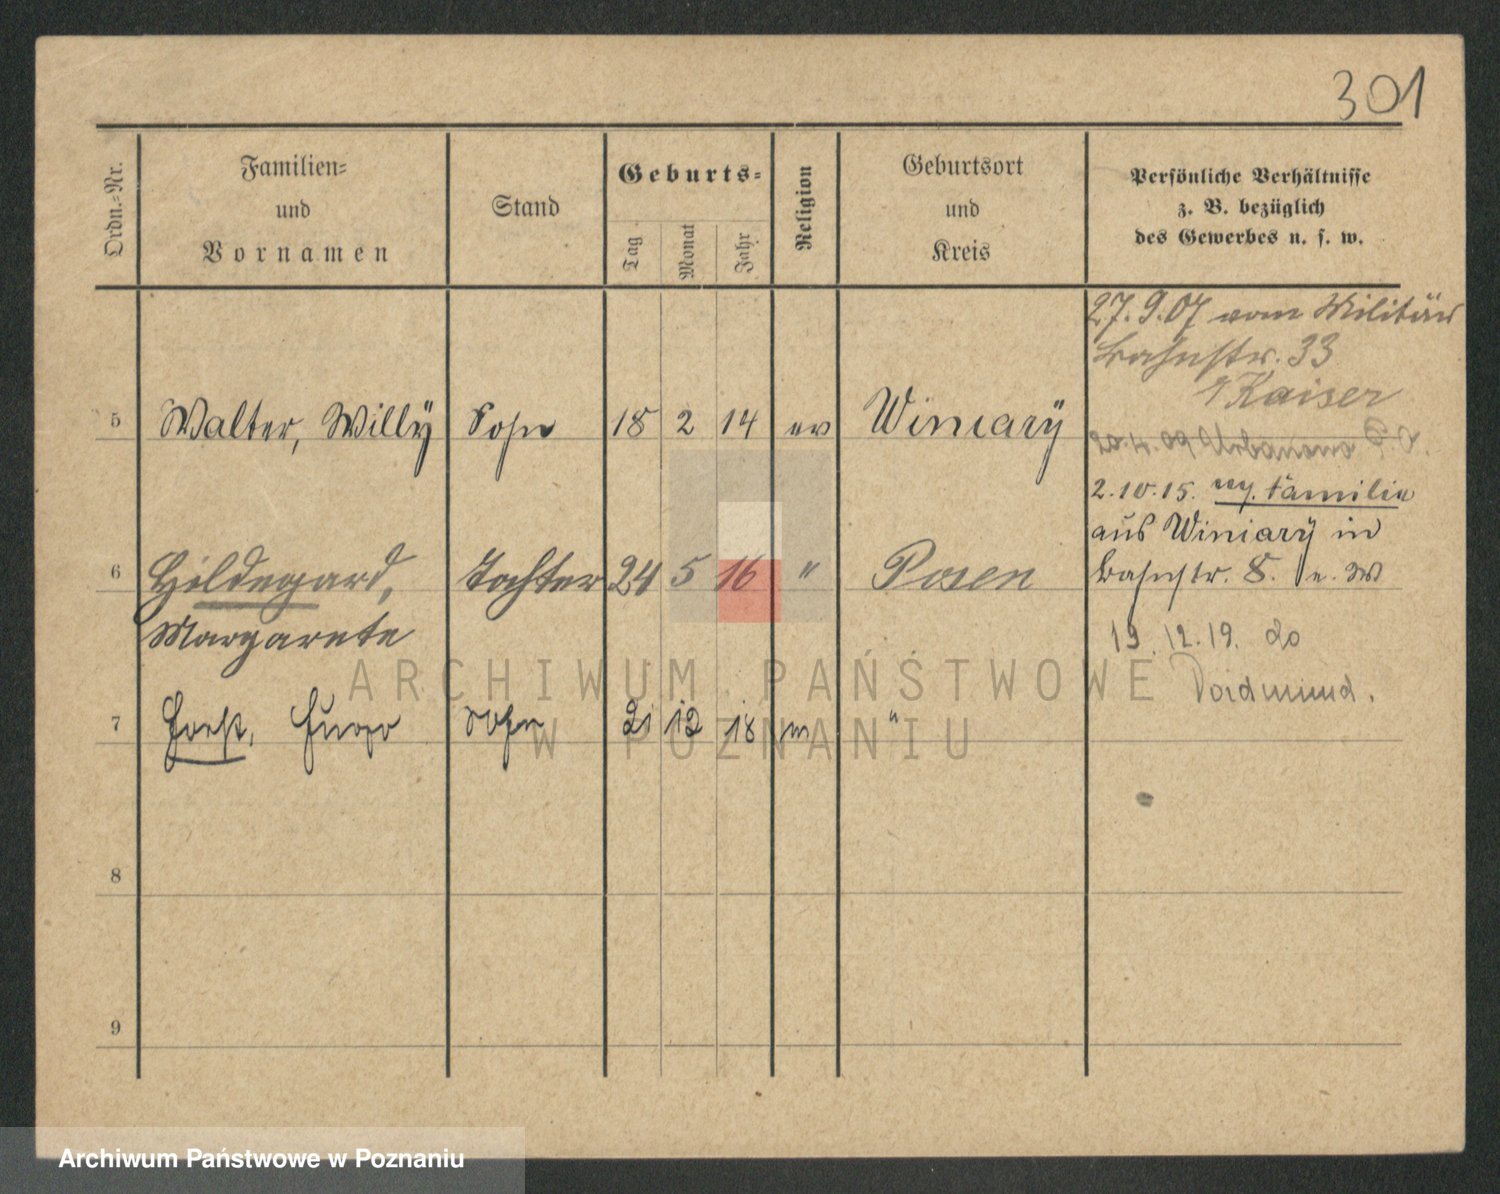 301
Ordn.-Nr.
Familien-
und
Vornamen
Stand
Geburts-
Tag
Monat
Jahr
Religion
Geburtsort
und
Kreis
Persönliche Verhältnisse
z. B. bezüglich
des Gewerbes u. s. w.
27.9.07 vom Militär
Bahnstr. 33
b/Kaiser
20.4.09 Urbanowo
5 Walter, Willy Sohn 18 2 14 ev Winiary
2.10.15. Familie
aus Winiary in
Bahnstr. 8.
6 Hildegard, Tochter 24 5 16 " Posen
Margarete
19.12.19. 20
Dordmund.
7 Horst, Hugo Sohn 21 12 18 "
8
9
ARCHIWUM PAŃSTWOWE
W POZNANIU
Archiwum Państwowe w Poznaniu